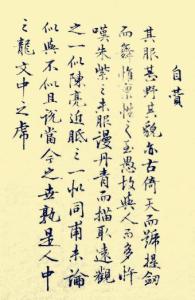 自贊
其服甚野其貌亦古倚天而號提劍
而舞惟稟性之至愚故與人而多忤
嘆朱紫之未服謾丹青而描取遠觀
之一似陳亮近眡之一似同甫未論
似與不似且說當今之世孰是人中
之龍文中之虎